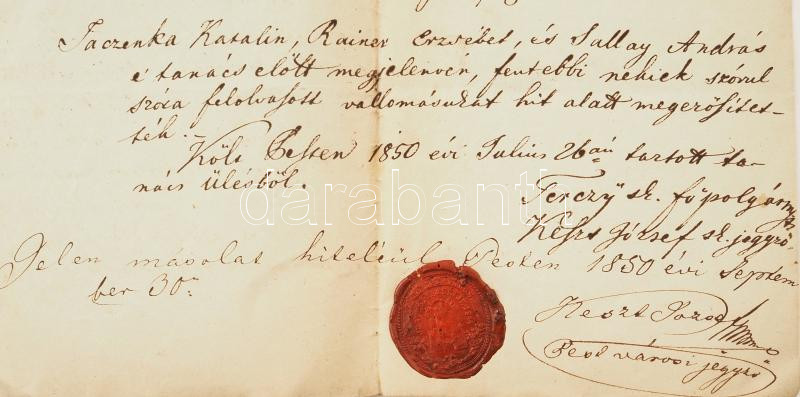 Taczenka Katalin, Rainer Erzsébet, és Sallay András
e tanács előtt megjelenvén, fentebbi nekiek szórul
szóra felolvasott vallomásukat hit alatt megerősitet-
ték.-
Költ Pesten 1850 évi Julius 26án tartott ta-
nács ülésből.
Terczy sk. főpolgárm
Keszt József sk. jegyző
Jelen másolat hiteléül Pesten 1850 évi Septem
ber 30n
Keszt József
Pest városi jegyző
darabanth